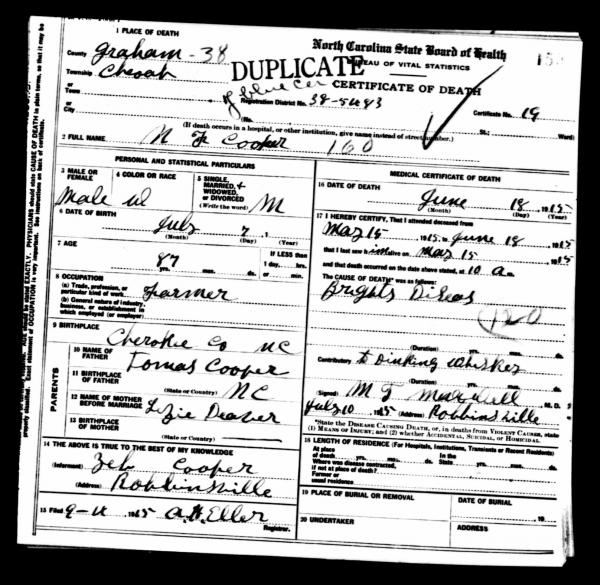 1 PLACE OF DEATH
County Graham - 38
Township Cheoah
or
Town
or
City
North Carolina State Board of Health
BUREAU OF VITAL STATISTICS
DUPLICATE
CERTIFICATE OF DEATH
Registration District No. 38-5483 Certificate No. 19
(No. St.; Ward)
(If death occurs in a hospital, or other institution, give name instead of street number.)
2 FULL NAME N F Cooper 160
PERSONAL AND STATISTICAL PARTICULARS
3 MALE OR FEMALE Male
4 COLOR OR RACE W
5 SINGLE, MARRIED, WIDOWED, or DIVORCED (Write the word) M
6 DATE OF BIRTH July 7, 1
(Month) (Day) (Year)
7 AGE 87 yrs. mos. ds.
If LESS than 1 day, hrs. or min.
8 OCCUPATION
(a) Trade, profession, or particular kind of work Farmer
(b) General nature of industry, business, or establishment in which employed (or employer)
9 BIRTHPLACE Cherokie Co NC
PARENTS
10 NAME OF FATHER Tomas Cooper
11 BIRTHPLACE OF FATHER NC
(State or Country)
12 NAME OF MOTHER BEFORE MARRIAGE Lizie Deaver
13 BIRTHPLACE OF MOTHER
(State or Country)
14 THE ABOVE IS TRUE TO THE BEST OF MY KNOWLEDGE
(Informant) Zeb Cooper
(Address) Robbinsville
15 Filed 1915 A.H. Eller
Registrar.
MEDICAL CERTIFICATE OF DEATH
16 DATE OF DEATH June 18, 1915
(Month) (Day) (Year)
17 I HEREBY CERTIFY, That I attended deceased from
May 15 1915, to June 18, 1915
that I last saw him alive on May 15 1915
and that death occurred on the date above stated, at 10 a m.
The CAUSE OF DEATH* was as follows:
Brights Diseas
120
(Duration) yrs. mos. ds.
Contributory to Dinking Whiskey
(Duration) yrs. mos. ds.
(Signed) M T M. D.
July 10 1915 (Address) Robbinsville
*State the DISEASE CAUSING DEATH, or, in deaths from VIOLENT CAUSES, state
(1) MEANS OF INJURY; and (2) whether ACCIDENTAL, SUICIDAL, OR HOMICIDAL.
18 LENGTH OF RESIDENCE (For Hospitals, Institutions, Transients or Recent Residents)
At place of death yrs. mos. ds. In the State yrs. mos. ds.
Where was disease contracted, if not at place of death?
Former or usual residence
19 PLACE OF BURIAL OR REMOVAL DATE OF BURIAL
, 19
20 UNDERTAKER ADDRESS